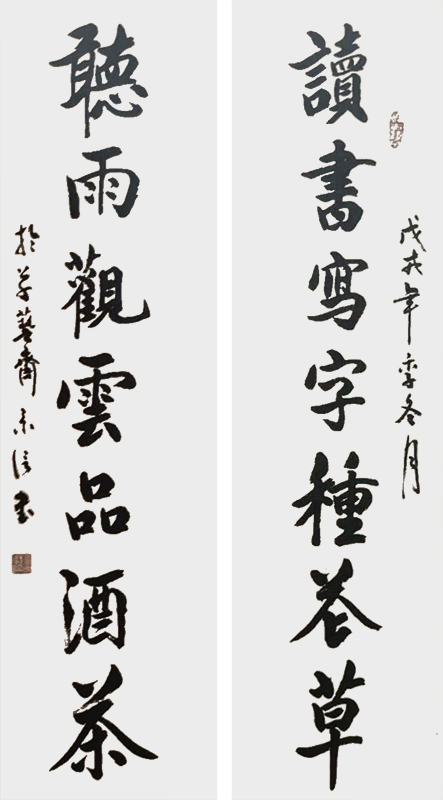 戊戌年季冬月
讀書寫字種花草
聽雨觀雲品酒茶
於草藝齋